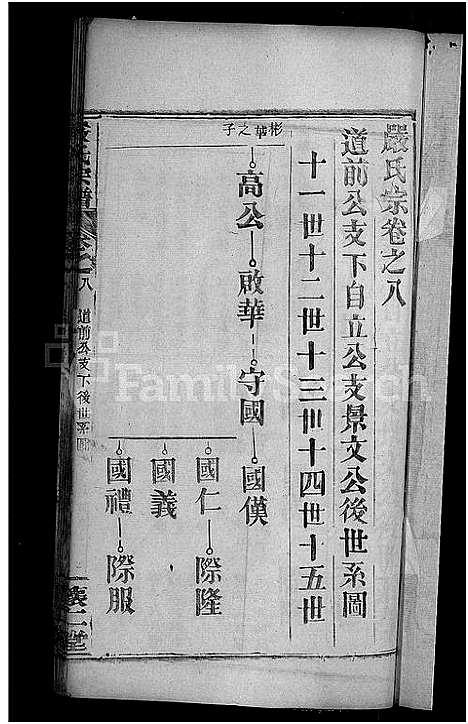 嚴氏宗卷之八
道前公支下自立公支景文公後世系圖
十一世十二世十三世十四世十五世
彬華之子
高公 啟華 守國 國僕
國仁 際隆
國義
國禮 際服
嚴氏宗譜 卷之八 道前公支下後世系圖 一
FamilySearch